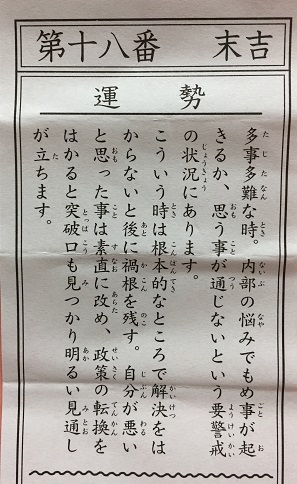 第十八番 末吉
運勢
多事多難な時。内部の悩みでもめ事が起
きるか、思う事が通じないという要警戒
の状況にあります。
こういう時は根本的なところで解決をは
からないと後に禍根を残す。自分が悪い
と思った事は素直に改め、政策の転換を
はかると突破口も見つかり明るい見通し
が立ちます。